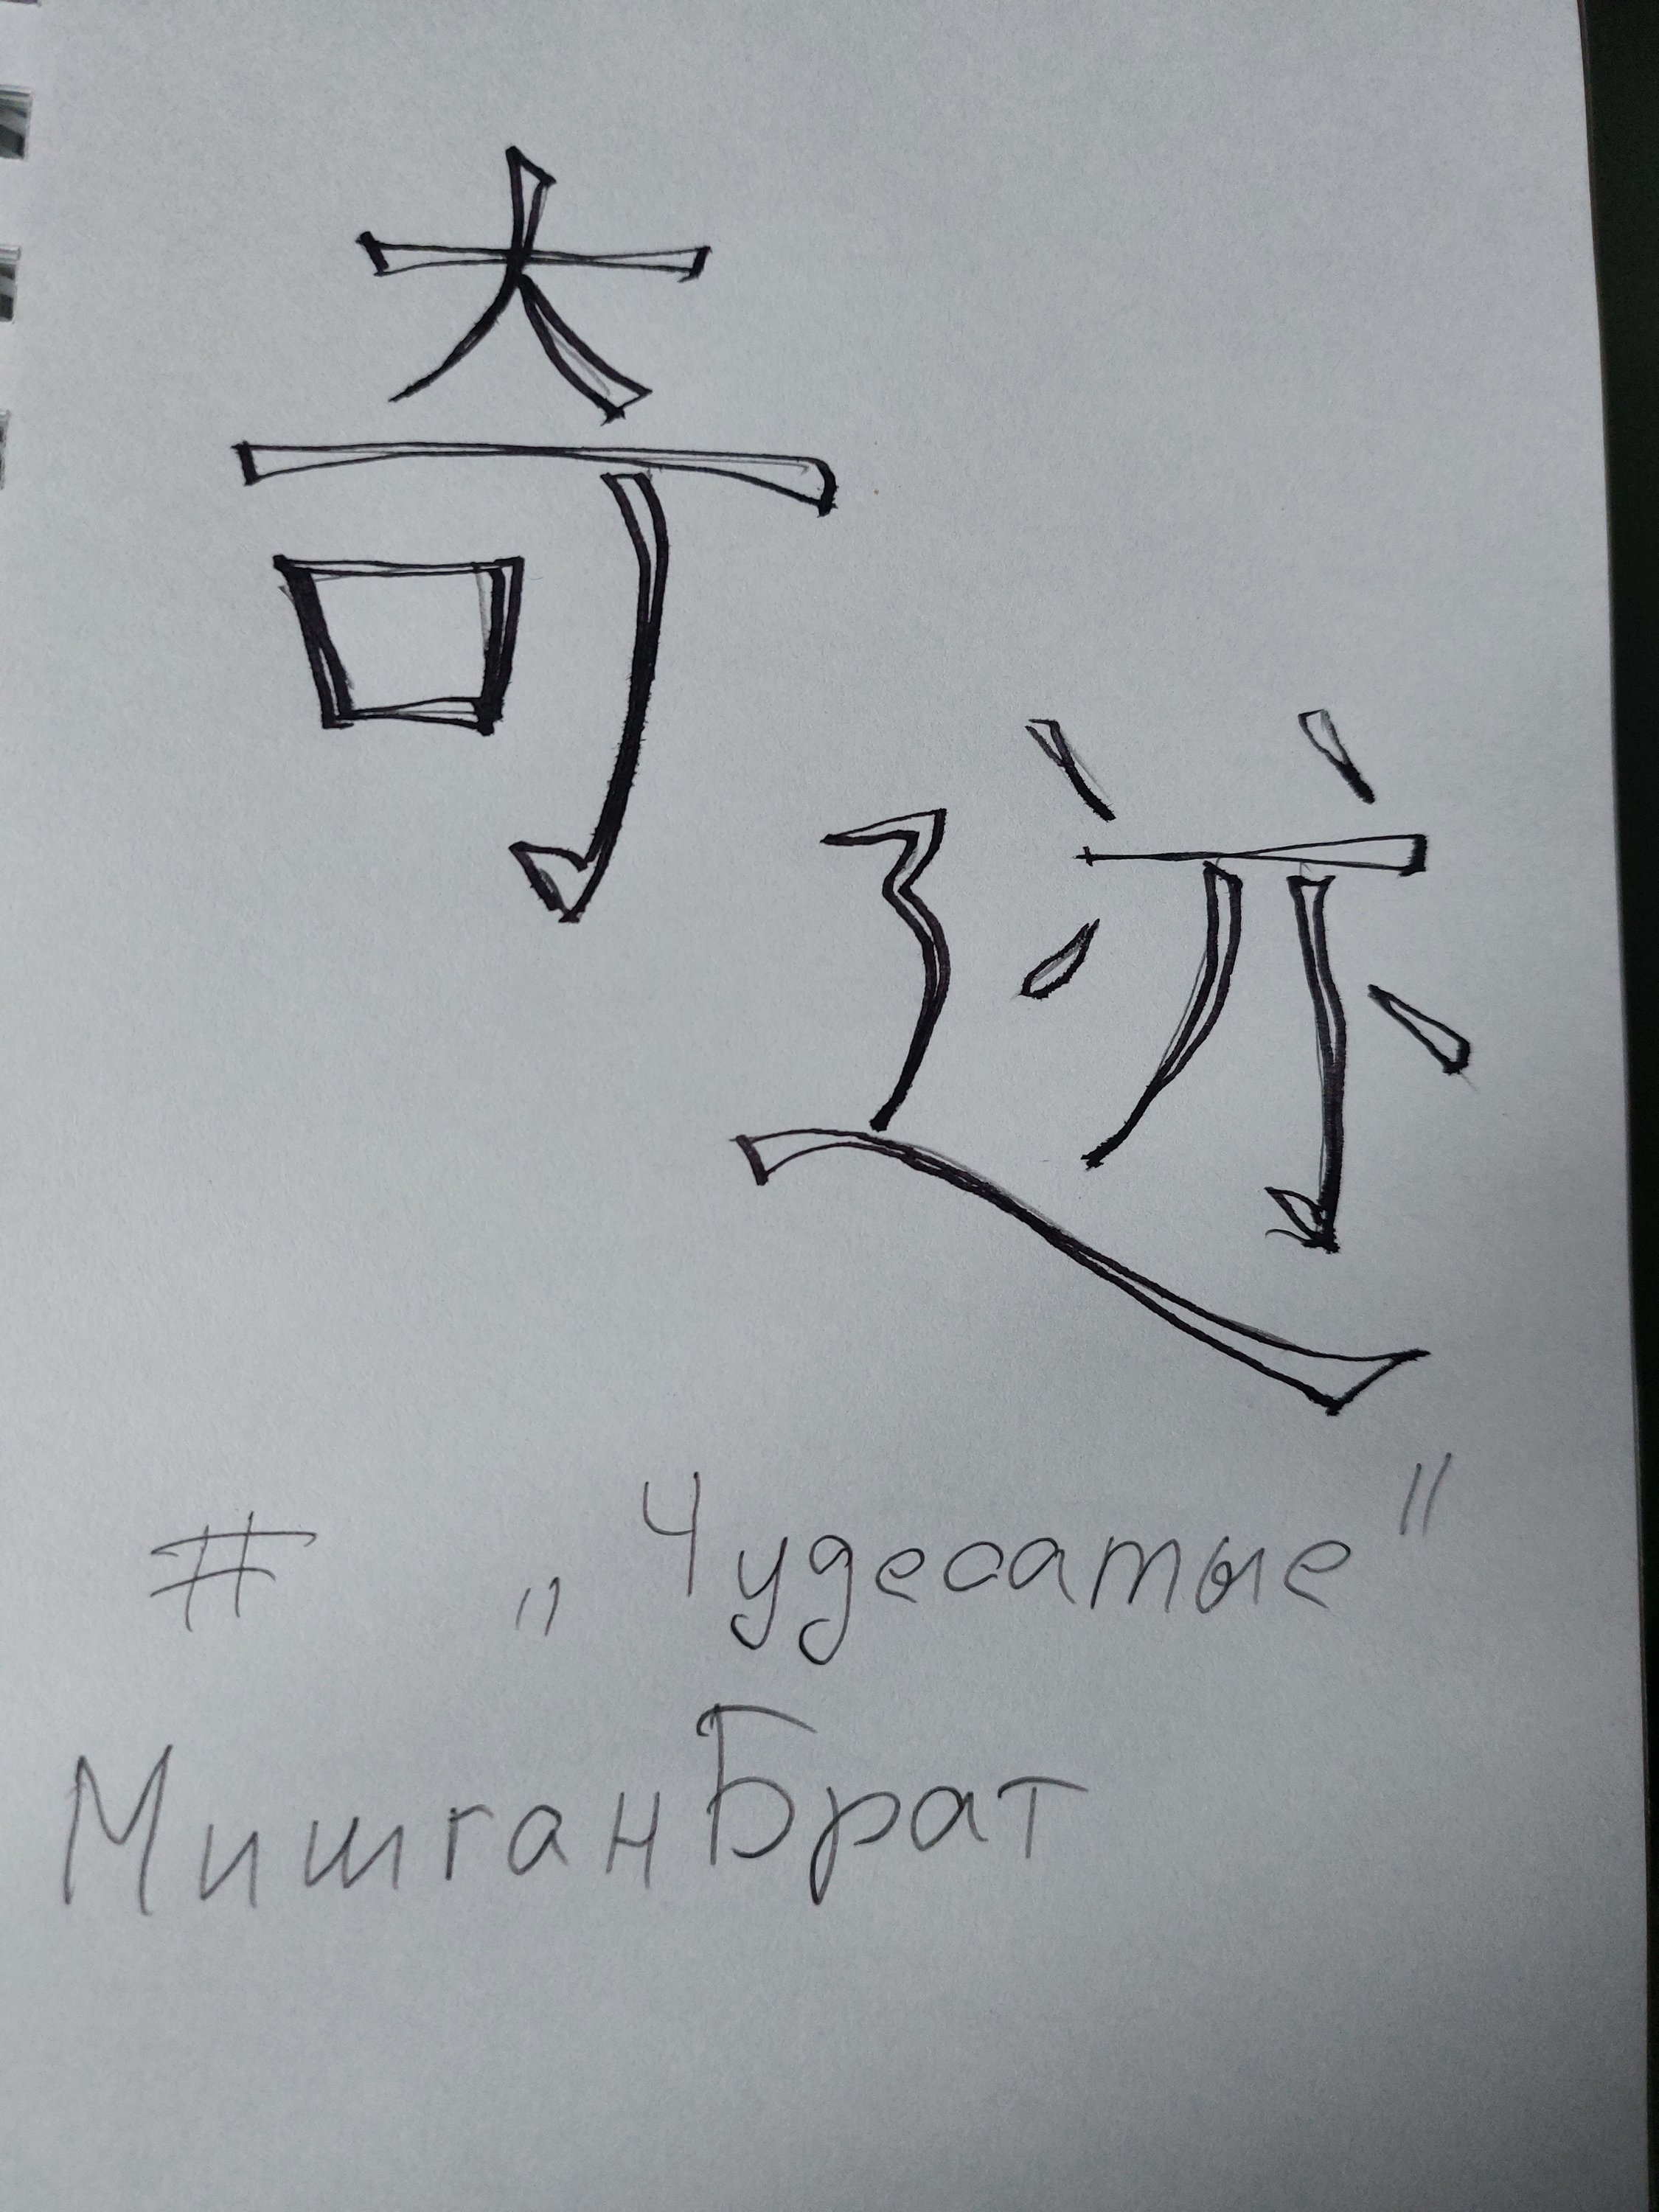 奇
迹
# „Чудесатые"
МишганБрат